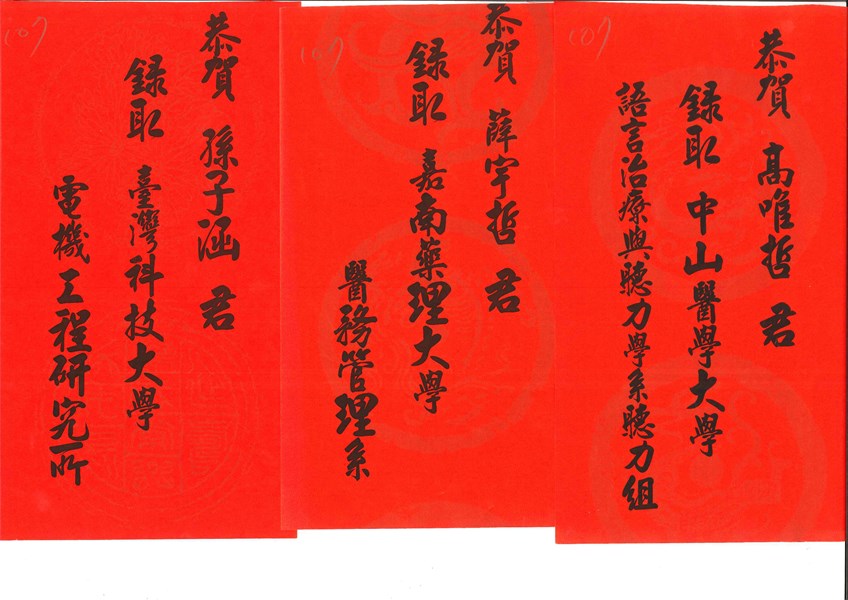 恭賀 高唯哲 君
録取 中山醫學大學
語言治療與聽力學系聽力組
107
恭賀 薛宇哲 君
録取 嘉南藥理大學
醫務管理系
107
恭賀 孫子涵 君
録取 臺灣科技大學
電機工程研究所
107